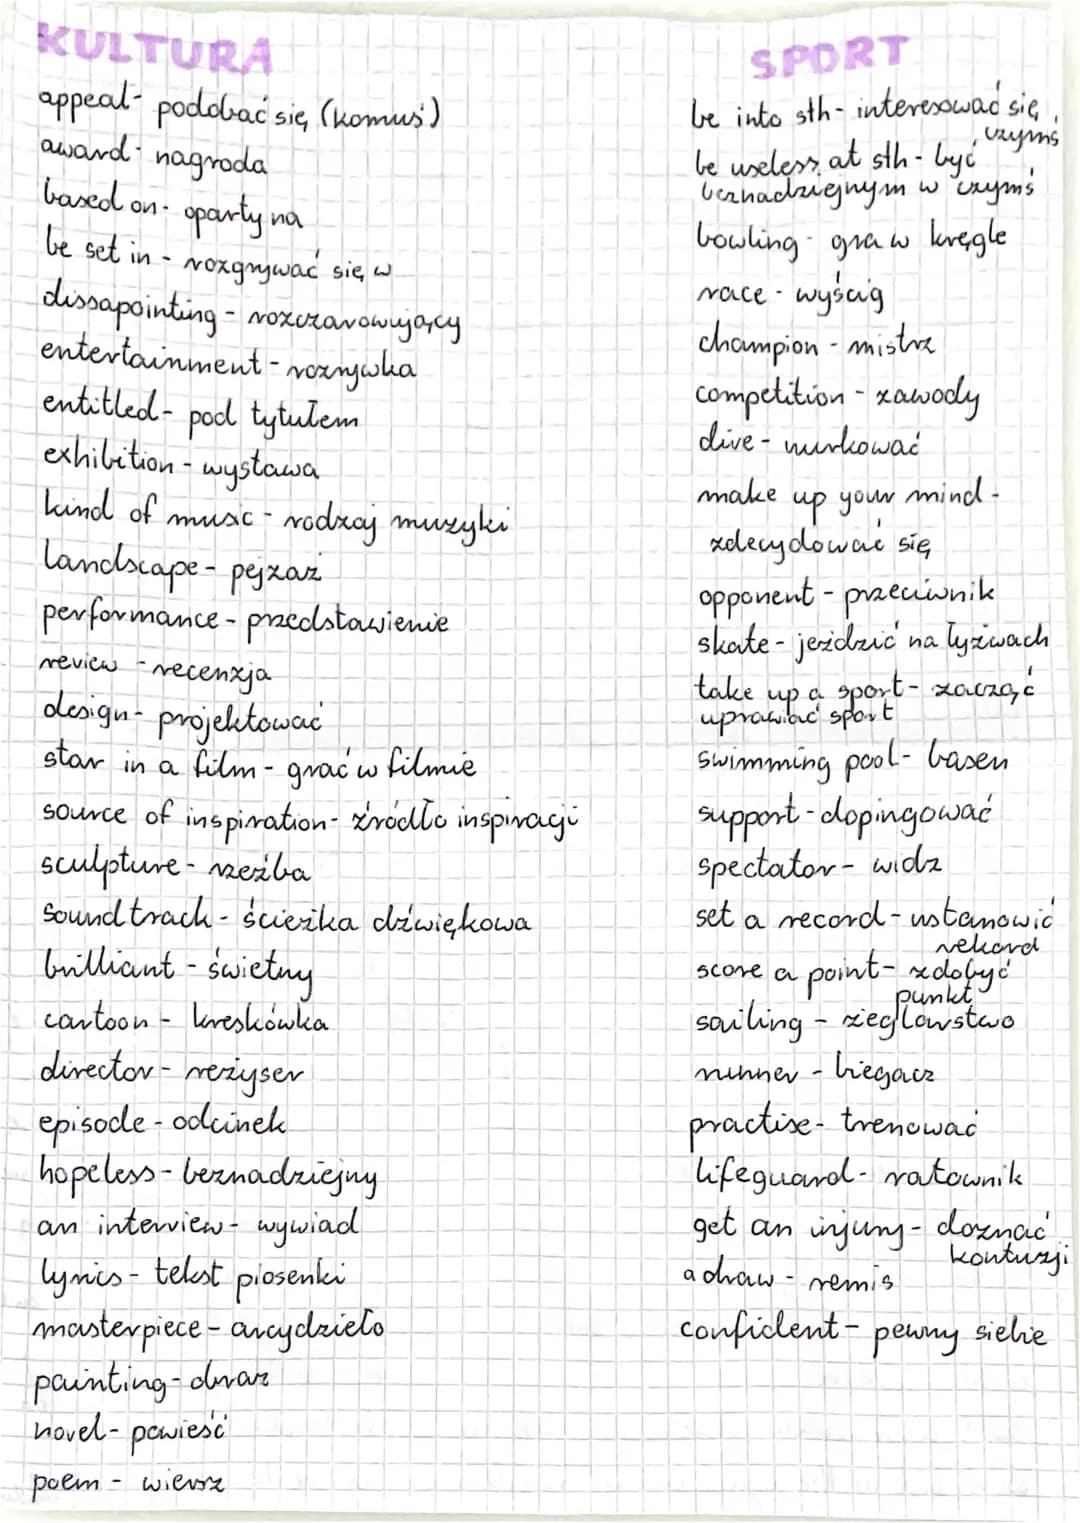 KULTURA
appeal - podobać się (komuś)
award - nagroda
based on - oparty na
be set in - rozgrywać się w
dissapointing - rozczarowujący
entertainment - rozrywka
entitled - pod tytułem
exhibition - wystawa
kind of music - rodzaj muzyki
landscape - pejzaż
performance - przedstawienie
review - recenzja
design - projektować
star in a film - grać w filmie
source of inspiration - źródło inspiracji
sculpture - rzeźba
soundtrack - ścieżka dźwiękowa
brilliant - świetny
cartoon - kreskówka
director - reżyser
episode - odcinek
hopeless - beznadziejny
an interview - wywiad
lyrics - tekst piosenki
masterpiece - arcydzieło
painting - obraz
novel - powieść
poem - wiersz
SPORT
be into sth - interesować się
czymś
be useless at sth - być
beznadziejnym w czymś
bowling - gra w kręgle
race - wyścig
champion - mistrz
competition - zawody
dive - nurkować
make up your mind -
zdecydować się
opponent - przeciwnik
skate - jeździć na łyżwach
take up a sport - zacząć
uprawiać sport
swimming pool - basen
support - dopingować
spectator - widz
set a record - ustanowić
rekord
score a point - zdobyć
punkt
sailing - żeglarstwo
runner - biegacz
practise - trenować
lifeguard - ratownik
get an injury - doznać
kontuzji
a draw - remis
confident - pewny siebie